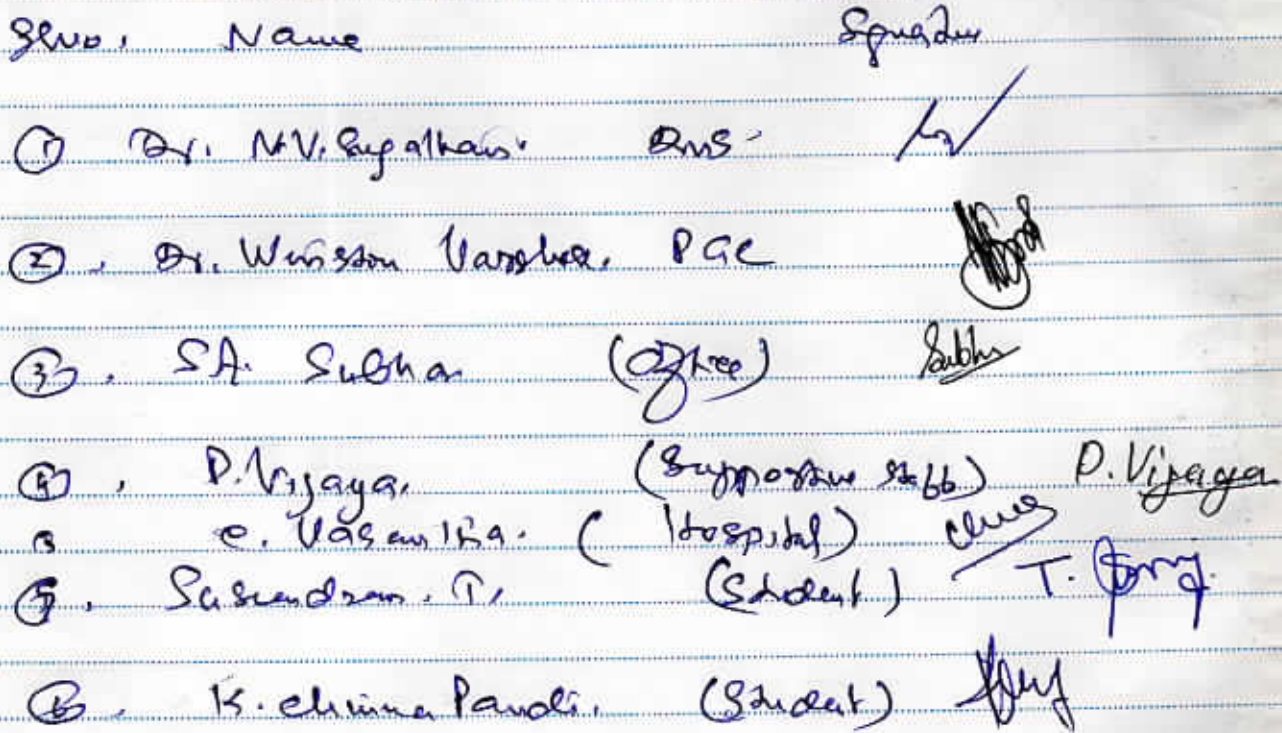 Sl.no. Name Signature
① Dr. N.V. Sugathan. RMS
② . Dr. Winston Varghese. PGC
③ . SA. Subhan (Office) Subhu
④ . P. Vijaya. (Supportive staff) P. Vijaya
e. Vasantha. (Hospital)
⑤ . Sasendran. T. (Student) T.
⑥ . K. Chinna Pandi. (Student)